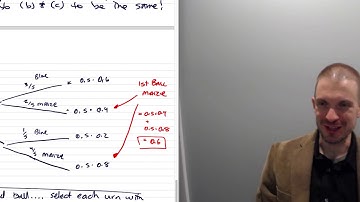 No (b) & (c) to be the same!
Blue
3/5
= 0.5 · 0.6
2/5 maize
= 0.5 · 0.4
1/5 Blue
0.5 · 0.2
4/5 maize
0.5 · 0.8
1st Ball
maize
= 0.5·0.4
+
0.5·0.8
= 0.6
ball.... select each urn with